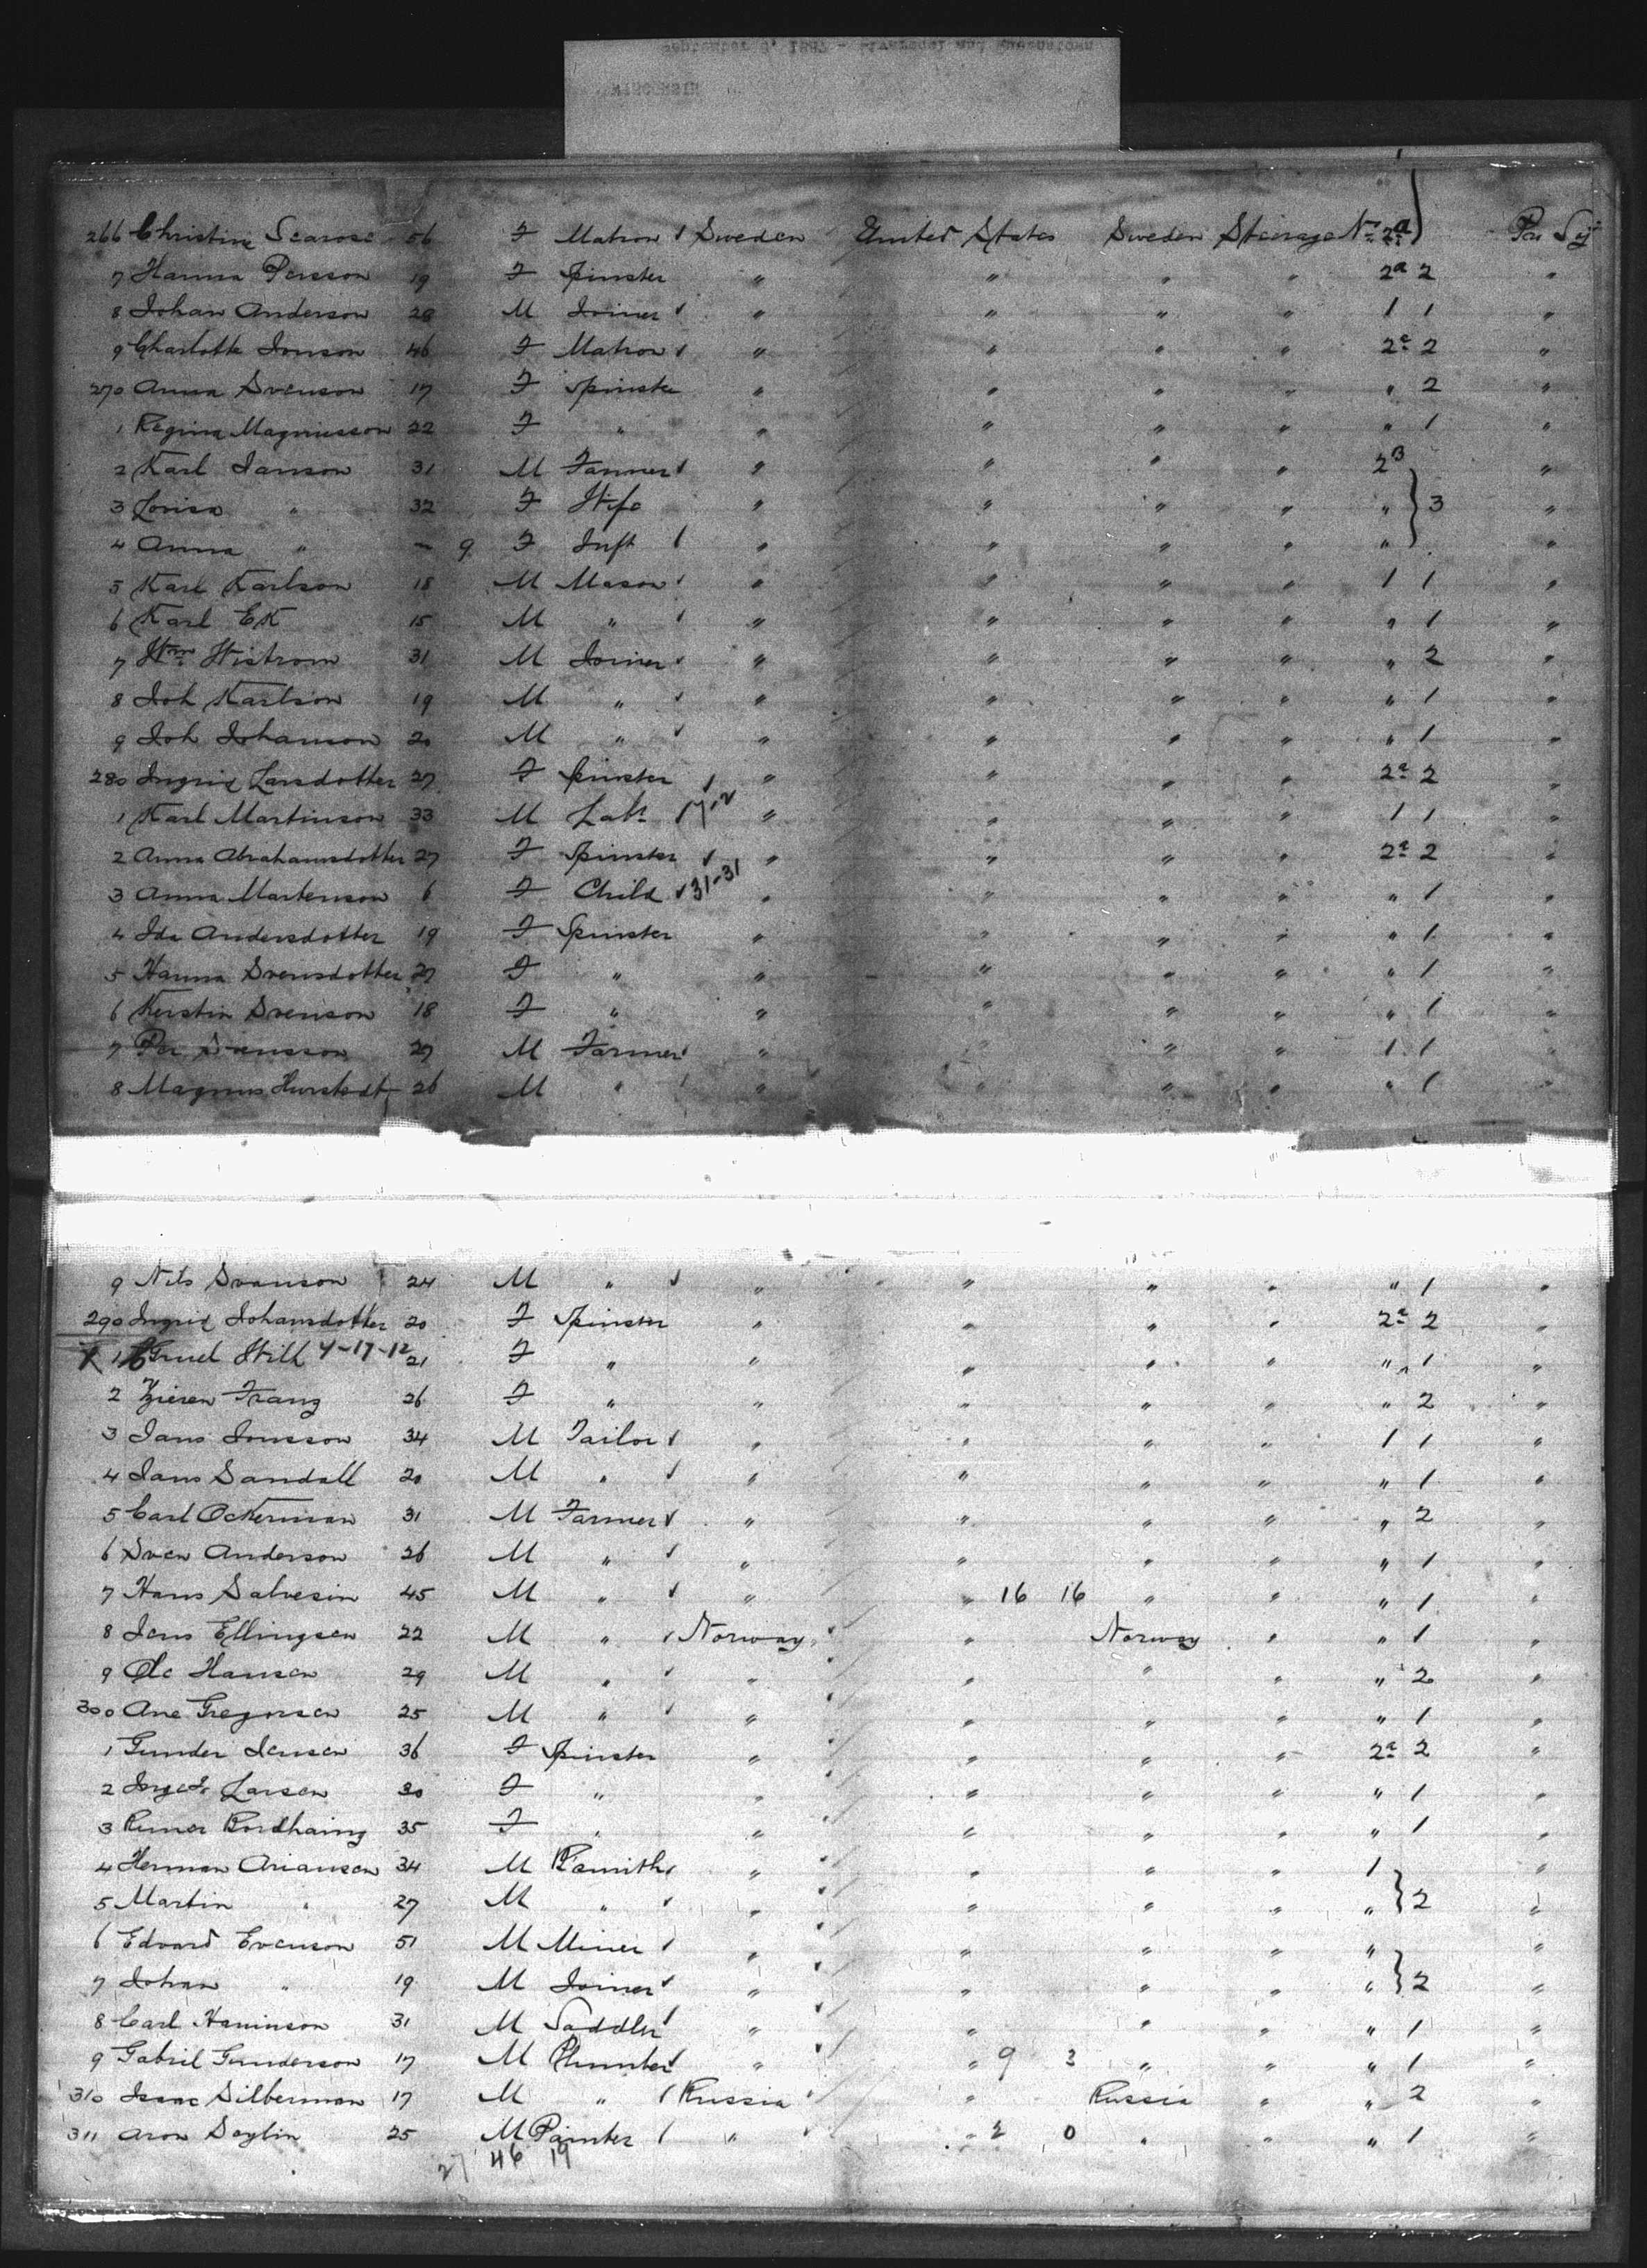 266 Christine 56 F Matron ✓ Sweden United States Sweden Steerage No 2a Per Soj
7 Hanna Persson 19 F Spinster " " " " 2a 2 "
8 Johan Anderson 28 M Joiner ✓ " " " " 1 1 "
9 Charlotte Jonson 46 F Matron ✓ " " " " 2a 2 "
270 Anna Svenson 17 F Spinster " " " " " 2 "
1 Regina Magnusson 22 F " " " " " " 1 "
2 Karl Janson 31 M Farmer ✓ " " " " 2B "
3 Lovisa " 32 F Wife " " " " " } 3 "
4 Anna " — 9 F Inft ✓ " " " " " "
5 Karl Karlson 18 M Mason ✓ " " " " 1 1 "
6 Karl Ek 15 M " ✓ " " " " " 1 "
7 Wm Wistrom 31 M Joiner ✓ " " " " " 2 "
8 Joh Karlson 19 M " ✓ " " " " " 1 "
9 Joh Johanson 20 M " ✓ " " " " " 1 "
280 Ingrid Larsdotter 27 F Spinster ✓ " " " " 2a 2 "
1 Karl Martinson 33 M Labr ✓ " " " " 1 1 "
2 Anna Abrahamsdotter 27 F Spinster ✓ " " " " 2a 2 "
3 Anna Martenson 6 F Child ✓ 31-31 " " " " " 1 "
4 Ida Andersdotter 19 F Spinster " " " " " 1 "
5 Hanna Svensdotter 27 F " " " " " " 1 "
6 Kerstin Svenson 18 F " " " " " " 1 "
7 Per Svensson 27 M Farmer ✓ " " " " 1 1 "
8 Magnus 26 M " ✓ " " " " " 1 "
9 Nils Svanson 24 M " ✓ " " " " " 1 "
290 Ingrid Johansdotter 20 F Spinster " " " " 2a 2 "
X 1 4-17-12 21 F " " " " " " 1 "
2 Franz 26 F " " " " " " 2 "
3 Jans Jonsson 34 M Tailor ✓ " " " " 1 1 "
4 Jans Sandall 20 M " ✓ " " " " " 1 "
5 Carl Ockerman 31 M Farmer ✓ " " " " " 2 "
6 Sven Anderson 26 M " ✓ " " " " " 1 "
7 Hans Salvesin 45 M " ✓ " " 16 16 " " " 1 "
8 Jens Ellingsen 22 M " ✓ Norway " Norway " " 1 "
9 Ole Hansen 29 M " ✓ " " " " " 2 "
300 Ane Gregorsen 25 M " ✓ " " " " " 1 "
1 Gunder Jensen 36 F Spinster " " " " 2a 2 "
2 Larsen 30 F " " " " " " 1 "
3 35 F " " " " " " 1 "
4 Herman Ariansen 34 M ✓ " " " " 1 "
5 Martin " 27 M " ✓ " " " " " } 2 "
6 Edvard Evenson 51 M Miner ✓ " " " " " "
7 Johan " 19 M Joiner ✓ " " " " " } 2 "
8 Carl Haninson 31 M Saddler ✓ " " " " " 1 "
9 Gabril Gunderson 17 M Plumber ✓ " " 9 3 " " " 1 "
310 Isaac Silberman 17 M " ✓ Russia " Russia " " 2 "
311 Aron 25 M Painter ✓ " " 2 0 " " " 1 "
27 46 19